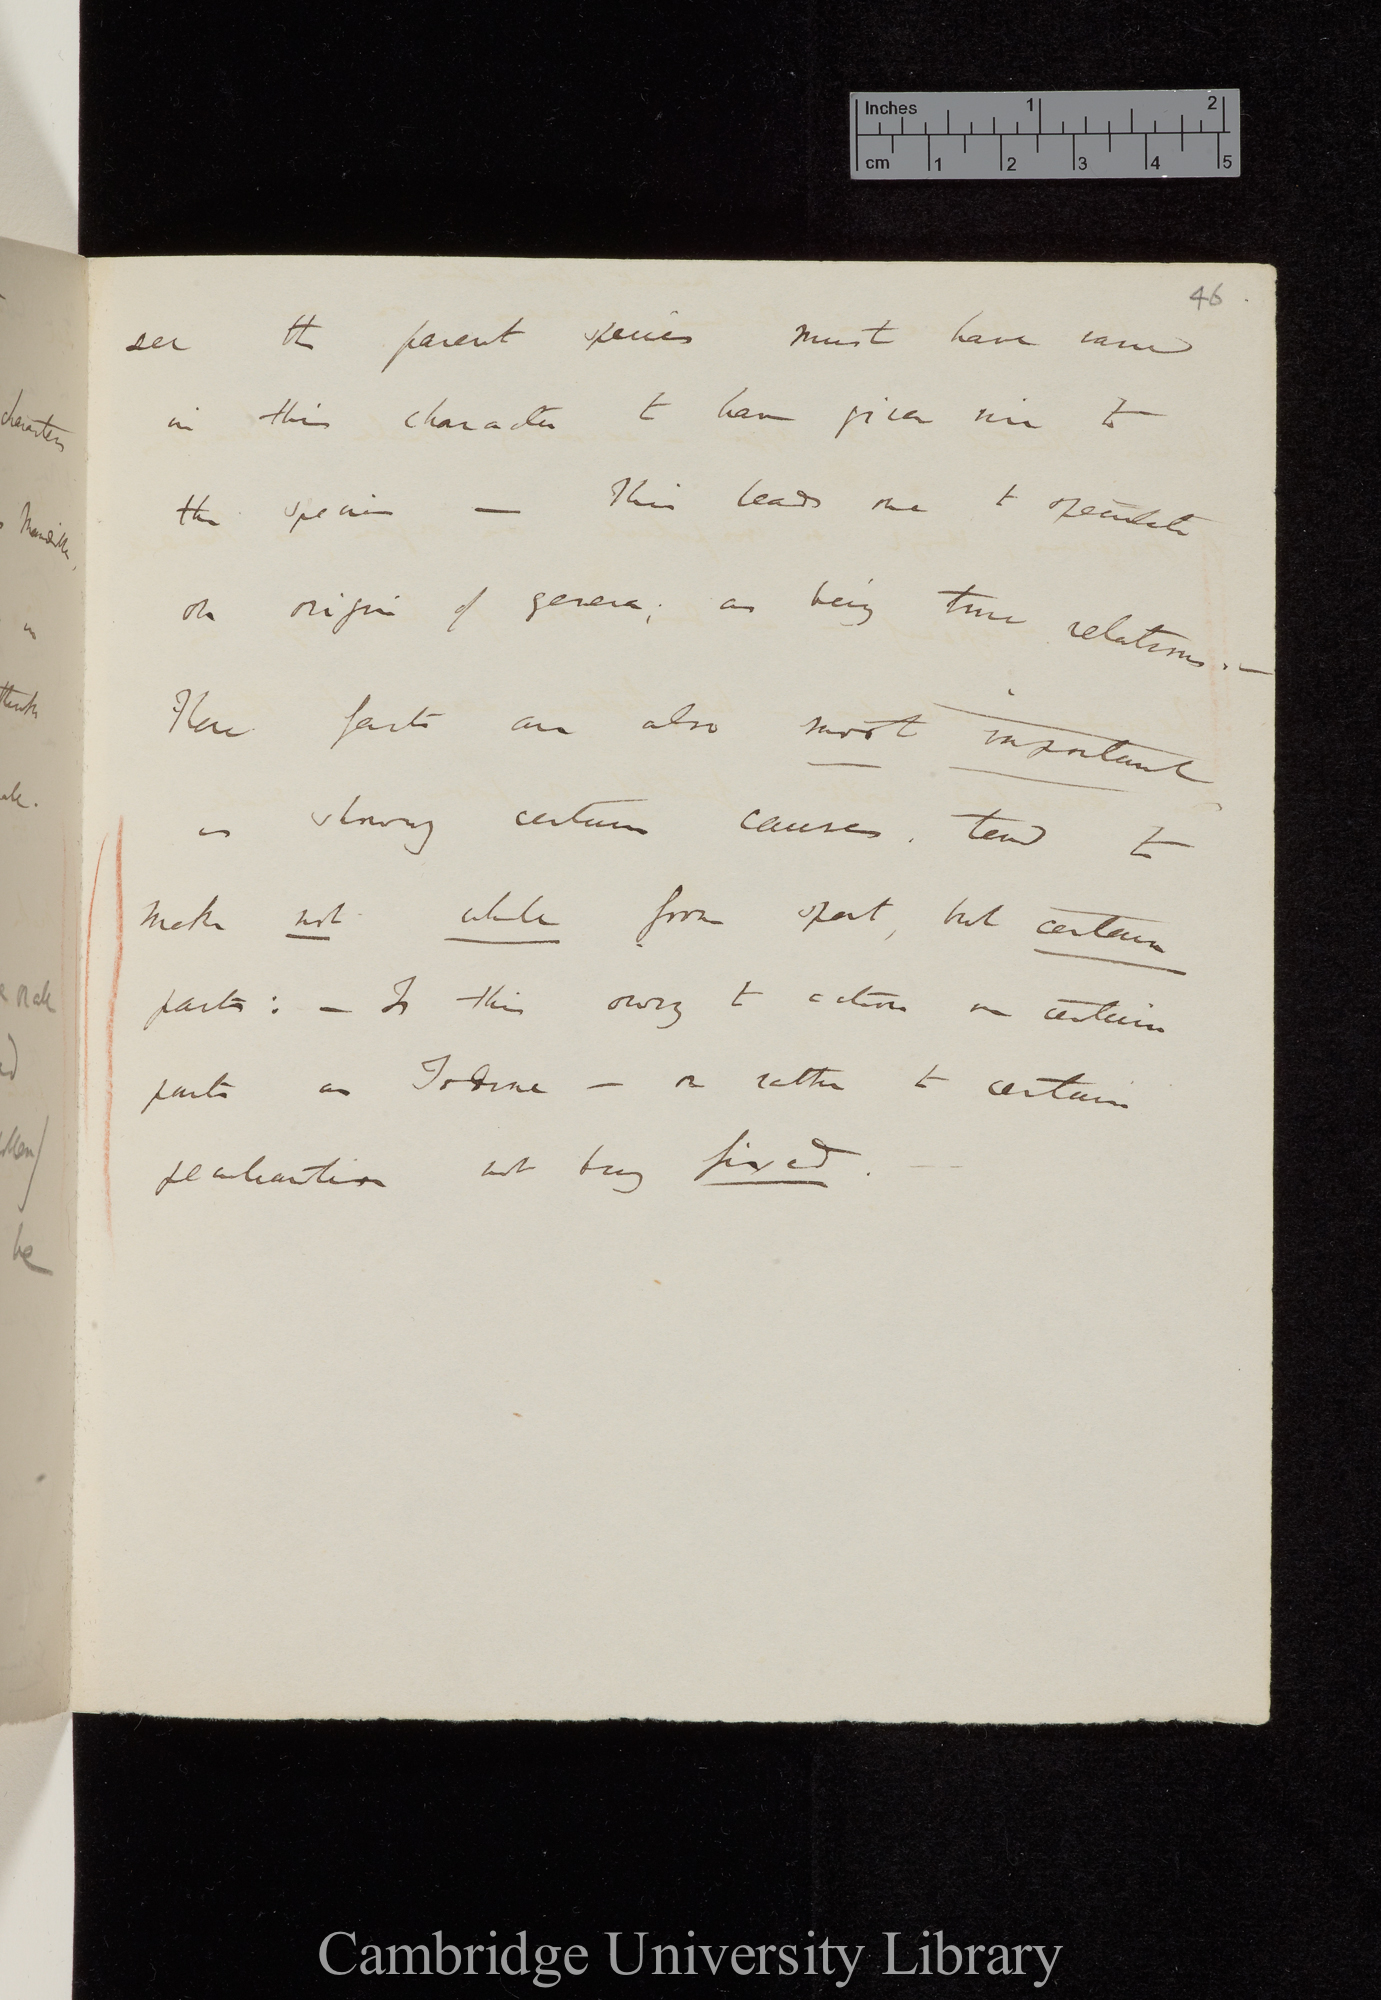 Inches 1 2
cm 1 2 3 4 5
46
see the parent species must have varied
in this character to have given rise to
the species — This leads one to speculate
on origin of genera; as being true relations. —
These facts are also most important
as showing certain causes, tend to
make not whole from spert, but certain
parts: — Is this owing to action on certain
parts as Iodine — or rather to certain
peculiarities not being fixed. —
characters
in
be
Cambridge University Library